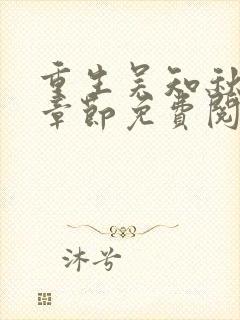 重生吴知秋
章节免费阅
沐兮